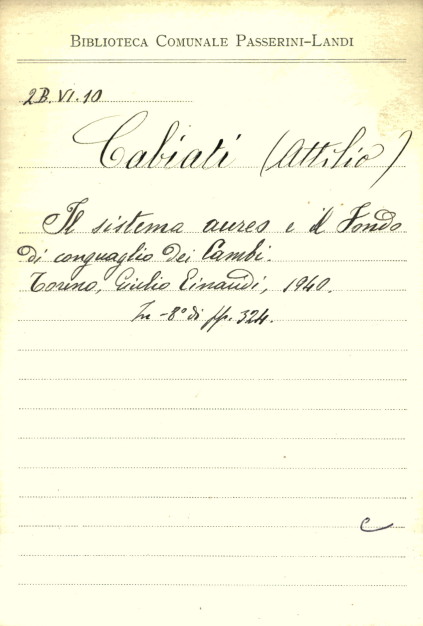 BIBLIOTECA COMUNALE PASSERINI-LANDI
2B.VI.10
Cabiati (Attilio)
Il sistema aureo e il Fondo
di conguaglio dei Cambi.
Torino, Giulio Einaudi, 1940.
In-8° di pp. 324.
C